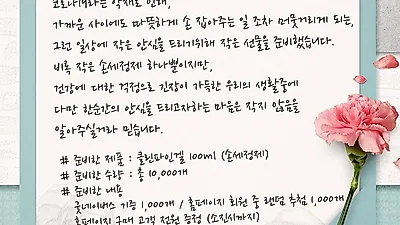 코로나19라는 악재로 인해,
가까운 사이에도 따뜻하게 손 잡아주는 일 조차 머뭇거리게 되는,
그런 일상에 작은 안심을 드리기위해 작은 선물을 준비했습니다.
비록 작은 손세정제 하나뿐이지만,
건강에 대한 걱정으로 긴장이 가득한 우리의 생활중에
다만 한순간의 안심을 드리고자하는 마음은 작지 않음을
알아주실거라 믿습니다.
# 준비한 제품 : 클린파인겔 100ml (손세정제)
# 준비한 수량 : 총 10,000개
# 준비한 내용
굿네이버스 기증 1,000개 / 홈페이지 회원 중 랜덤 추첨 1,000개
홈페이지 구매 고객 전원 증정 (소진시까지)